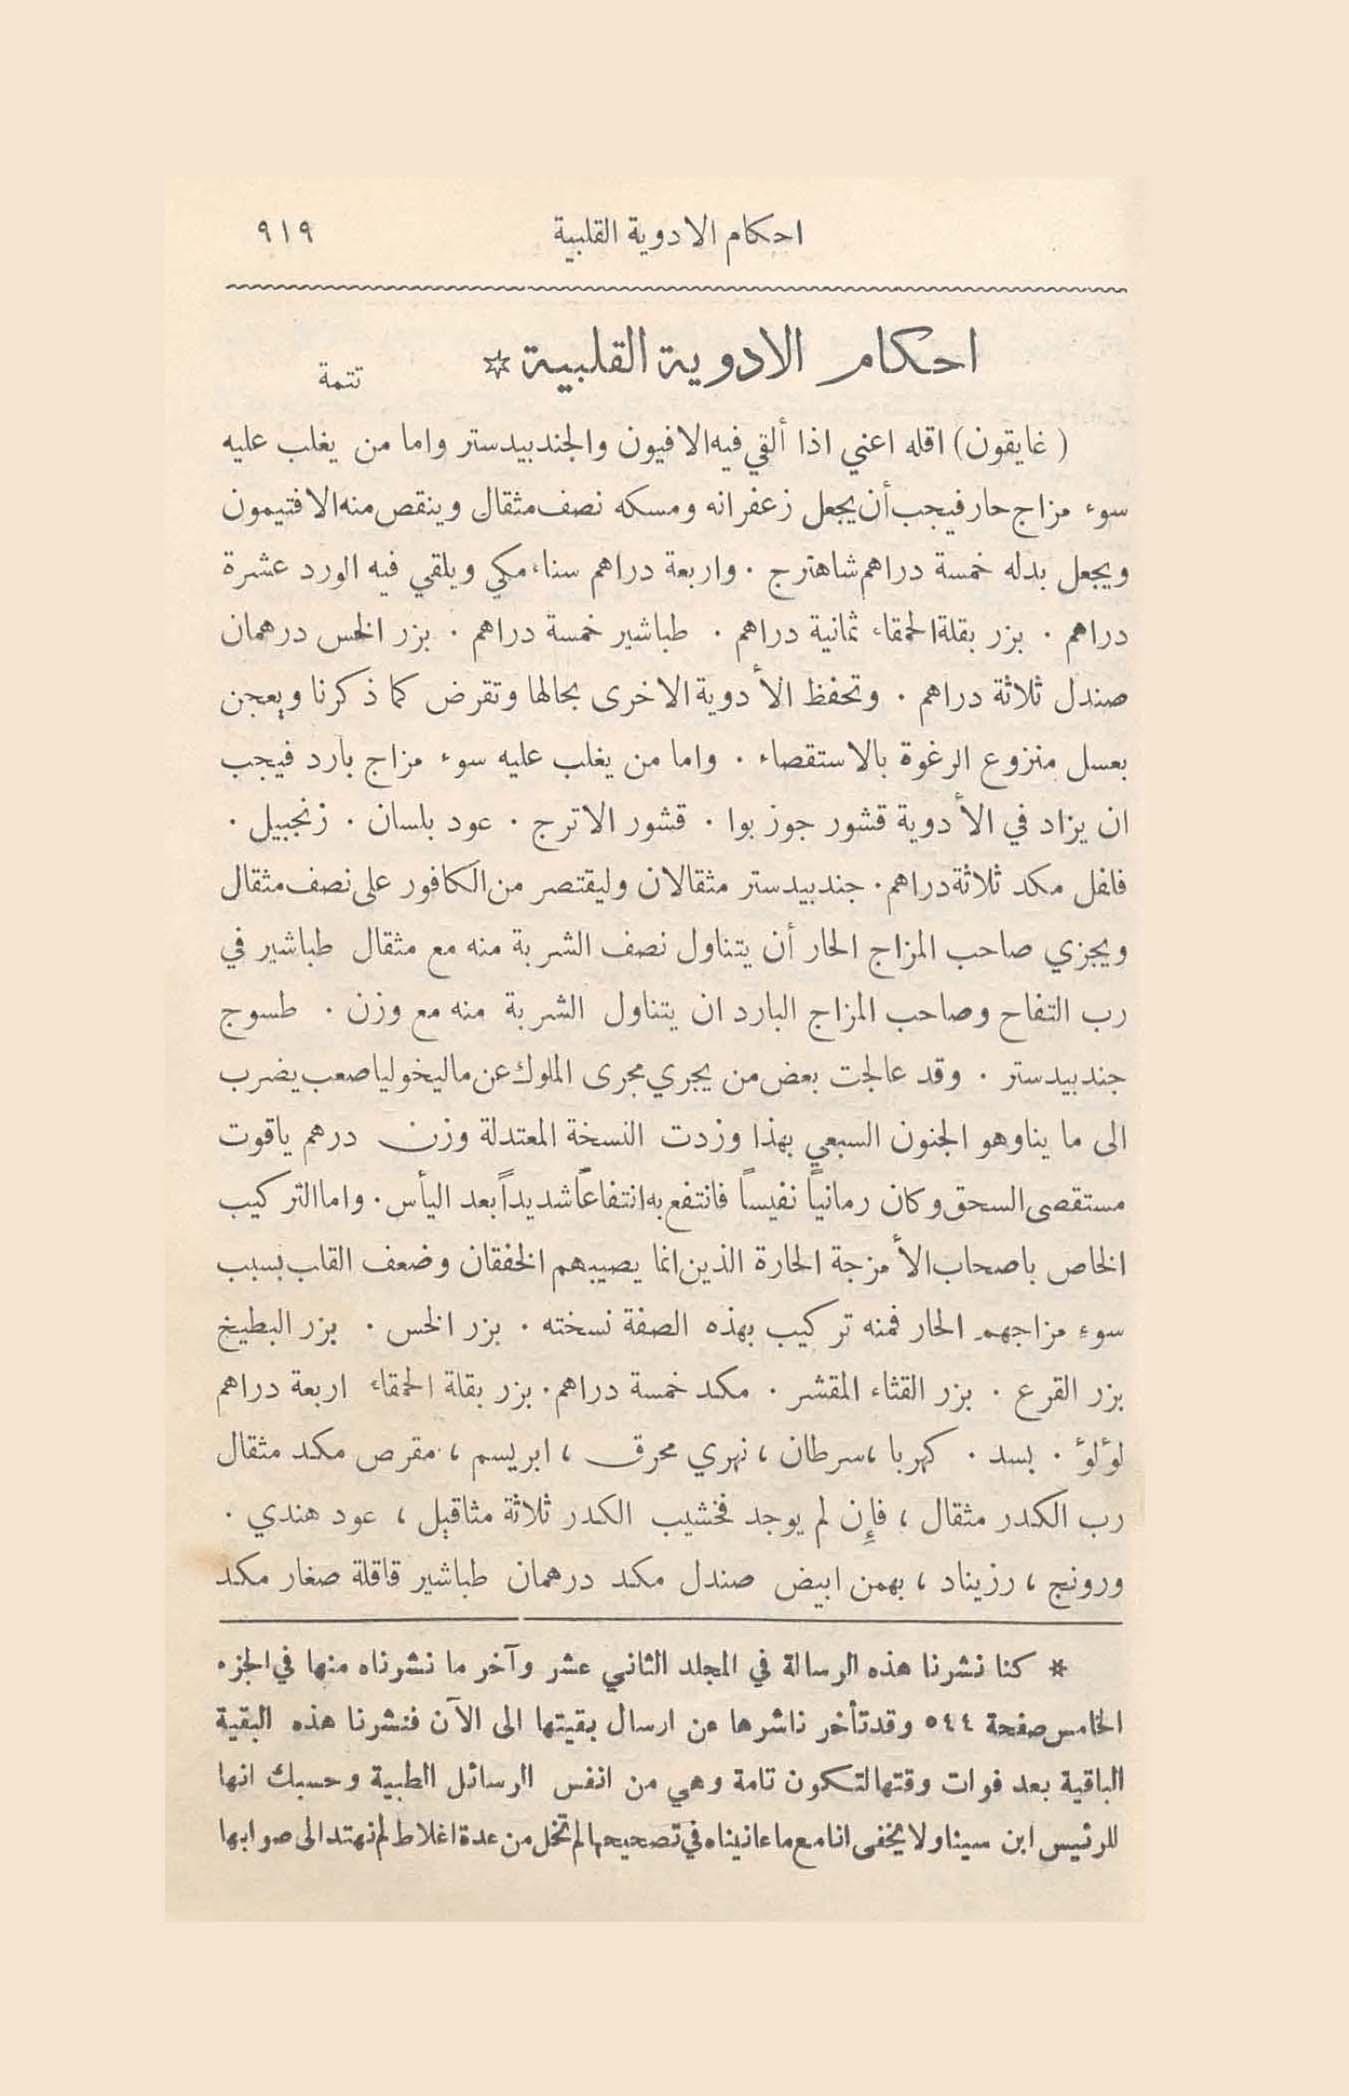 احكام الادوية القلبية ٩١٩
احكام الادوية القلبية * تتمة
( غايقون ) اقله اعني اذا ألقي فيه الافيون والجندبيدستر واما من يغلب عليه
سوء مزاج حار فيجب أن يجعل زعفرانه ومسكه نصف مثقال وينقص منه الافتيمون
ويجعل بدله خمسة دراهم شاهترج . واربعة دراهم سناء مكي ويلقي فيه الورد عشرة
دراهم . بزر بقلة الحمقاء ثمانية دراهم . طباشير خمسة دراهم . بزر الخس درهمان
صندل ثلاثة دراهم . وتحفظ الأدوية الاخرى بحالها وتقرض كما ذكرنا ويعجن
بعسل منزوع الرغوة بالاستقصاء . واما من يغلب عليه سوء مزاج بارد فيجب
ان يزاد في الأدوية قشور جوز بوا . قشور الاترج . عود بلسان . زنجبيل .
فلفل مكد ثلاثة دراهم . جندبيدستر مثقالان وليقتصر من الكافور على نصف مثقال
ويجزي صاحب المزاج الحار أن يتناول نصف الشربة منه مع مثقال طباشير في
رب التفاح وصاحب المزاج البارد ان يتناول الشربة منه مع وزن . طسوج
جندبيدستر . وقد عالجت بعض من يجري مجرى الملوك عن ماليخوليا صعب يضرب
الى ما يناوهو الجنون السبعي بهذا وزدت النسخة المعتدلة وزن درهم ياقوت
مستقصى السحق وكان رمانياً نفيساً فانتفع به انتفاعاً شديداً بعد اليأس . واما التركيب
الخاص باصحاب الأمزجة الحارة الذين انما يصيبهم الخفقان وضعف القلب بسبب
سوء مزاجهم الحار فمنه تركيب بهذه الصفة نسخته . بزر الخس . بزر البطيخ
بزر القرع . بزر القثاء المقشر . مكد خمسة دراهم . بزر بقلة الحمقاء اربعة دراهم
لؤلؤ . بسد . كهربا ، سرطان ، نهري محرق ، ابريسم ، مقرص مكد مثقال
رب الكدر مثقال ، فإِن لم يوجد فخشيب الكدر ثلاثة مثاقيل ، عود هندي .
ورونج ، رزيناد ، بهمن ابيض صندل مكد درهمان طباشير قاقلة صغار مكد
* كنا نشرنا هذه الرسالة في المجلد الثاني عشر وآخر ما نشرناه منها في الجزء
الخامس صفحة ٥٤٤ وقد تأخر ناشرها عن ارسال بقيتها الى الآن فنشرنا هذه البقية
الباقية بعد فوات وقتها لتكون تامة وهي من انفس الرسائل الطبية وحسبك انها
للرئيس ابن سينا ولا يخفى انا مع ما عانيناه في تصحيحها لم تخل من عدة اغلاط لم نهتد الى صوابها